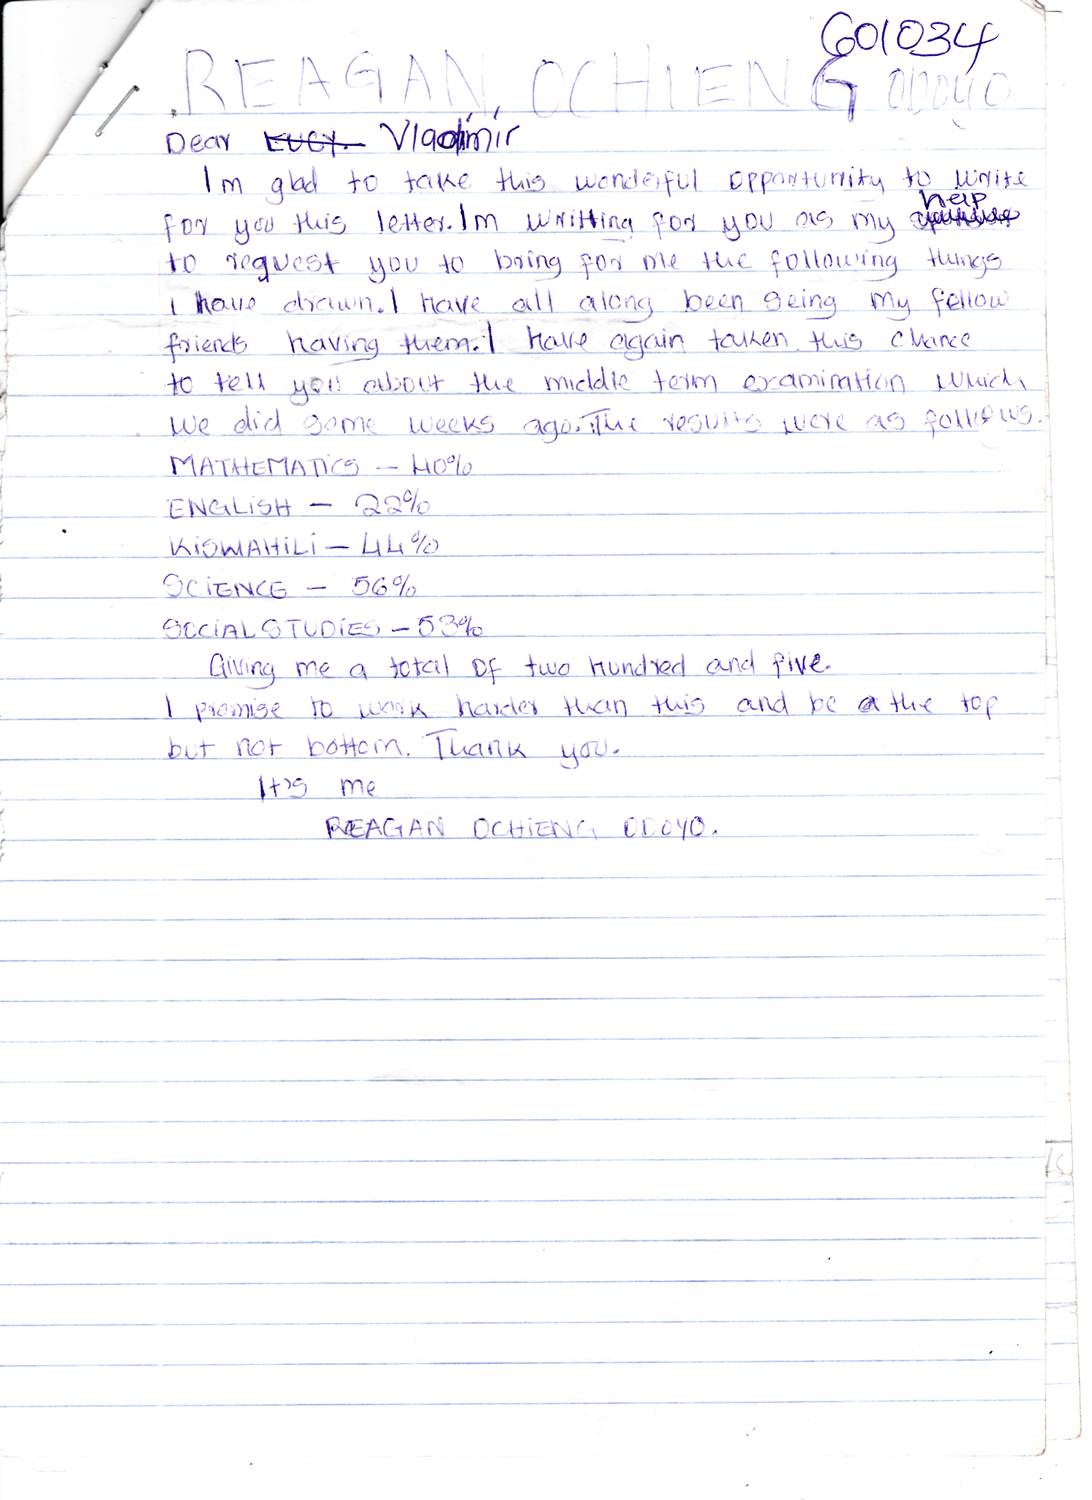 601034
REAGAN, OCHIENG ODOYO
Dear Lucy. Vladimir
Im glad to take this wonderful opportunity to write
for you this letter. Im writting for you as my help
to request you to bring for me the following things
I have drawn. I have all along been seing my fellow
friends having them. I have again taken this chance
to tell you about the middle term examination which
we did some weeks ago. The results were as follows.
MATHEMATICS - 40%
ENGLISH - 22%
KISWAHILI - 44%
SCIENCE - 56%
SOCIAL STUDIES - 53%
Giving me a total of two hundred and five.
I promise to work harder than this and be a the top
but not bottom. Thank you.
It's me
REAGAN OCHIENG ODOYO.